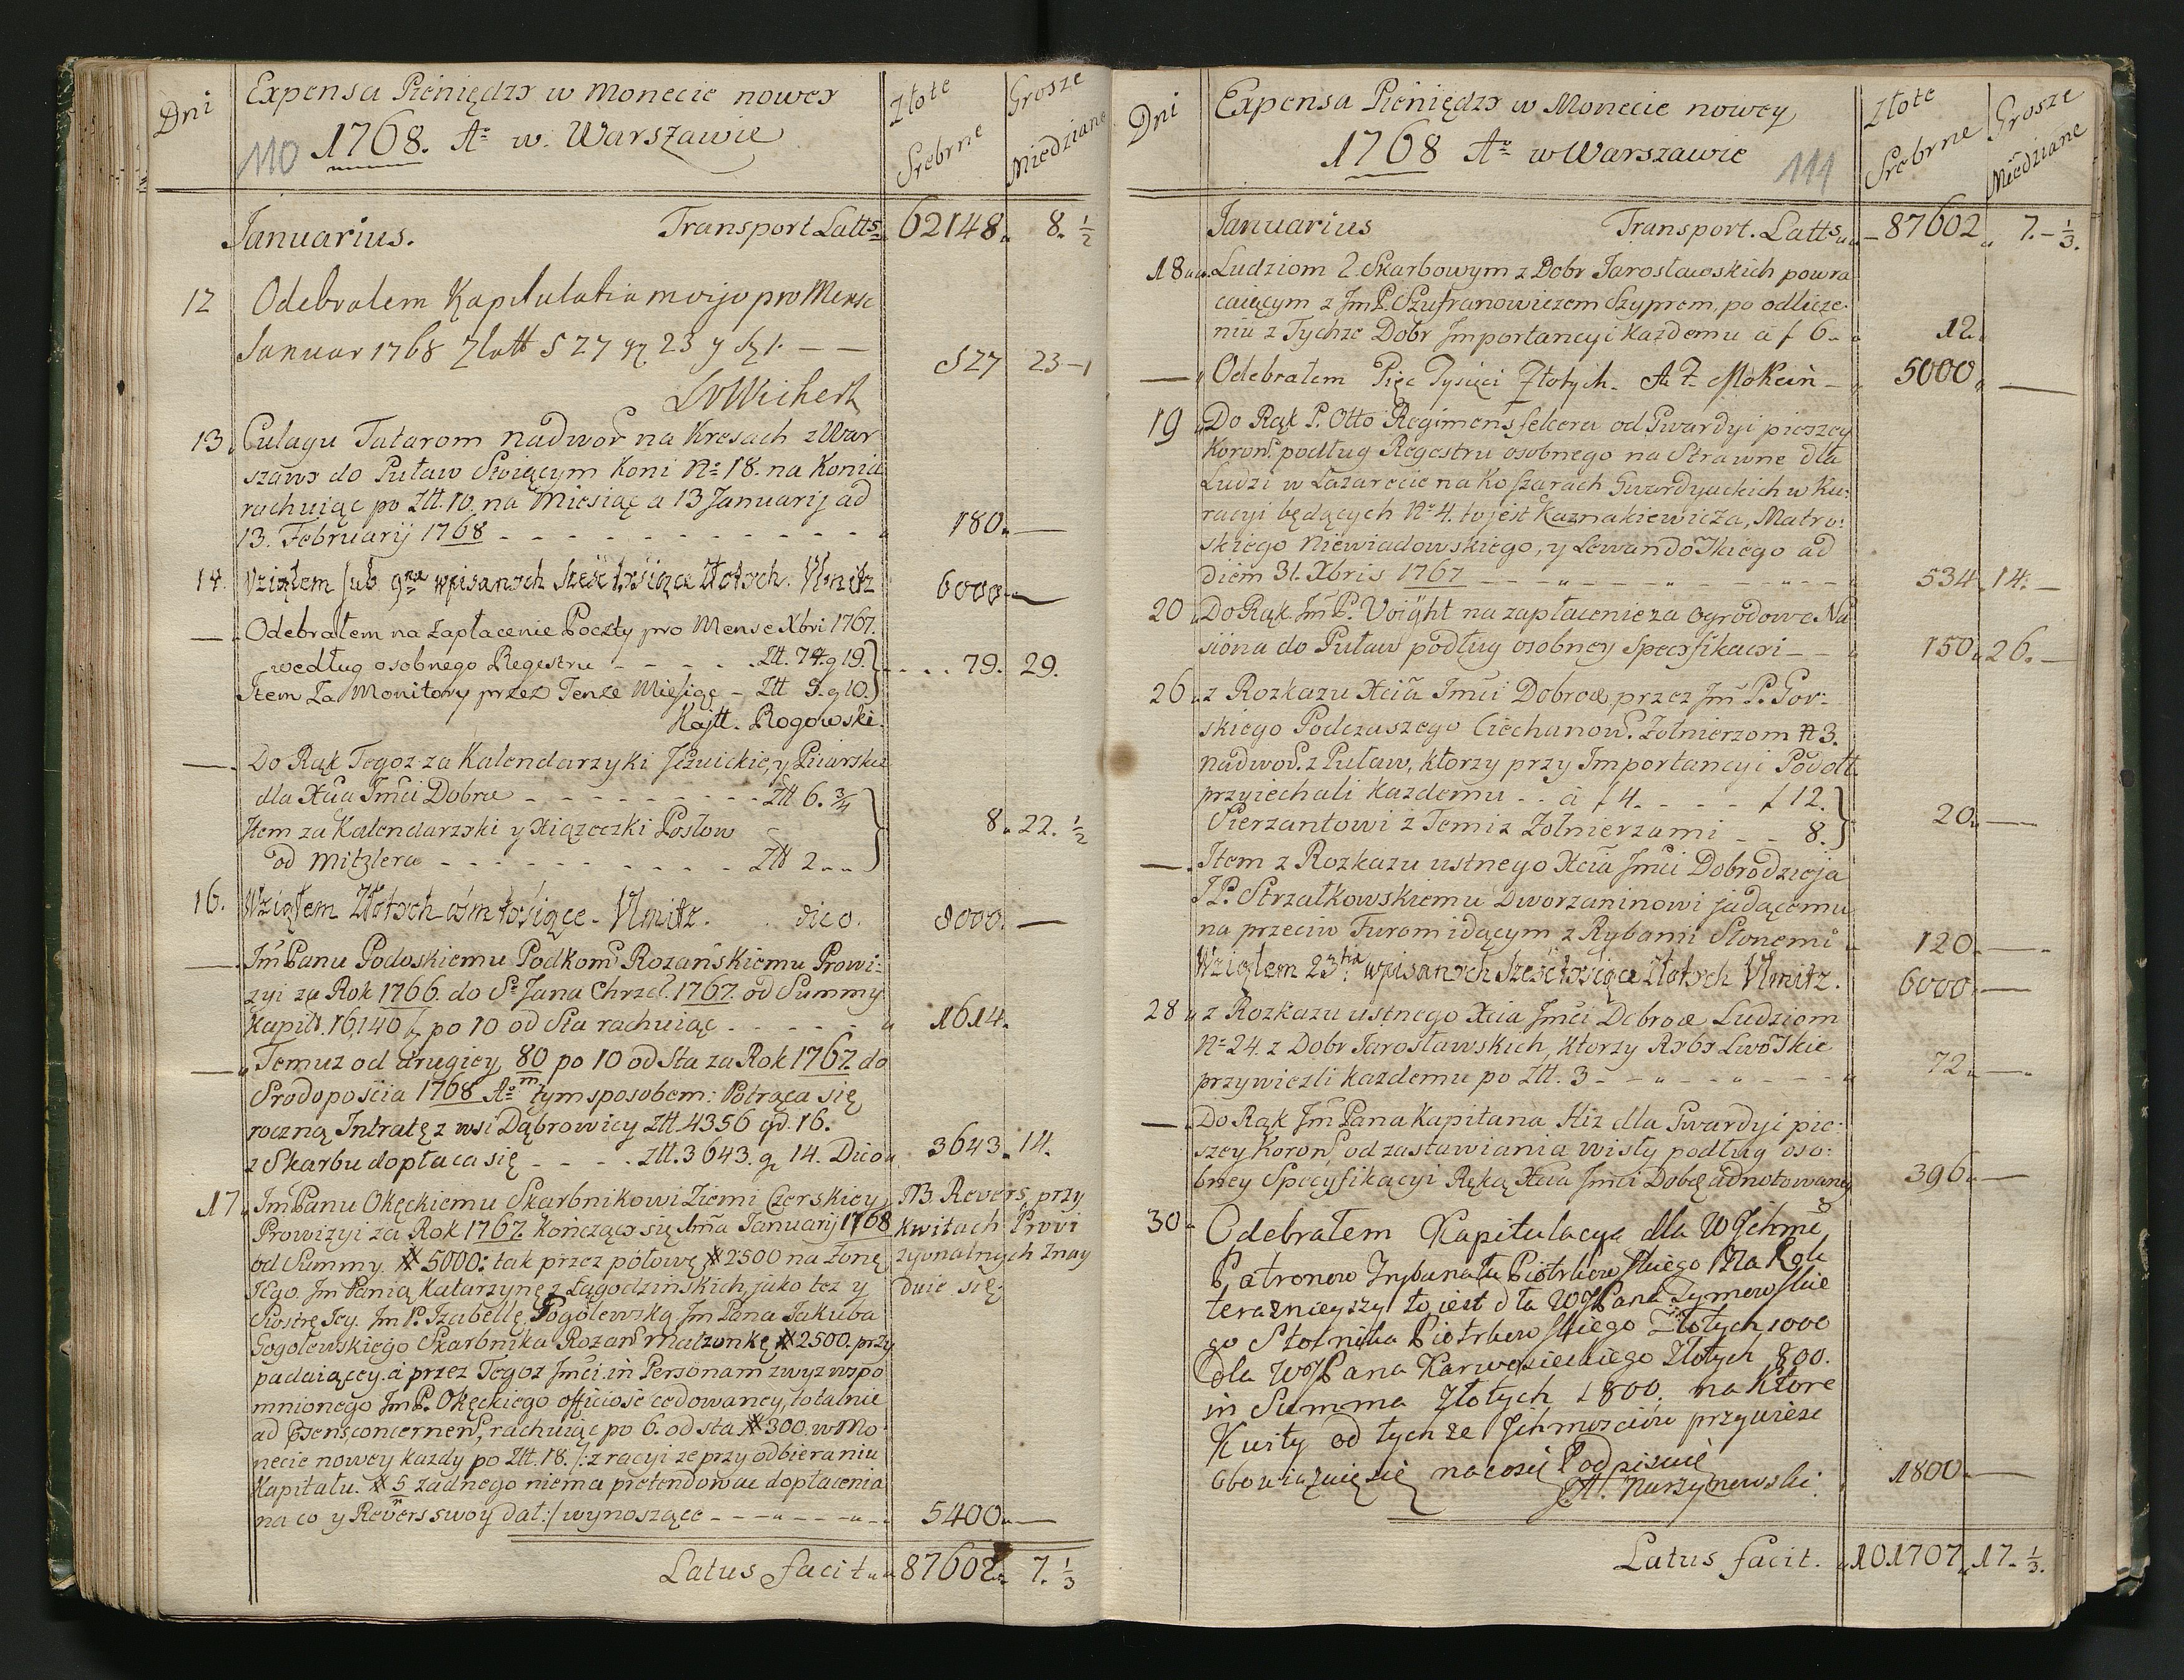 Dni
Expensa Pieniędzy w Monecie nowey
Złote Srebrne
Grosze Miedziane
110 1768. Ao w Warszawie
Januarius. Transport Latts 62148 8. 1/2
12 Odebrałem Kapitulatia moijo pro Mense
Januar 1768 Zlott 527 gz 23 y sz 1. — — 527 23-1
13. Culagu Tatarom nadwor na Kresach z War
szawy do Puław Stoiącym Koni No 18. na Konia
rachuiąc po Ztt. 10. na Miesiąc a 13 Januarij ad
13. Februarij 1768 - - - 180. —
14. Wziąłem sub 9na wpisanych sześć tysięcy złotych. Vlmitz 6000 —
— Odebrałem na zapłacenie Poczty pro Mense Xbri 1767.
według osobnego Regestru - - - Ztt. 74. g 19.} . . . 79. 29.
Item Za Monitory przez Tenze Miesiąc - Ztt 5. g 10.
Kajtt. Rogowski.
— Do Rąk Tegoz za Kalendarzyki Jezuickie, y Piiarskie
dla Xcia Jmci Dobro - - - Ztt 6. 3/4
Item za Kalendarzyki y Xiązeczki Posłow 8. 22. 1/2
od Mitzlera - - - Ztt 2 . .
16. Wziąłem Złotych ośm tysięcy - Vlmitz. dico. 8000. —
— Jm Panu Podoskiemu Podkom Rozańskiemu Prowi:
zyi za Rok 1766. do St Jana Chrzcl. 1767. od Summy
Kapitt. 16,140 f, po 10 od Sta rachuiąc - - - 1614.
— Temuz od drugiey 80/m po 10 od Sta za Rok 1767. do
Srodoposcia 1768 Ao tym sposobem: Potrąca się
roczną Intratę z wsi Dąbrowicy Ztt. 4356 gd. 16.
z Skarbu dopłaca się - - - Ztt. 3643. g 14. Dico 3643. 14.
17. Jm Panu Okęckiemu Skarbnikowi Ziemi Czerskiey NB Revers przy
Prowizyi za Rok 1767. kończący się Ima Januarij 1768 Kwitach Provi
od Summy # 5000: tak przez połowę # 2500 na Zonę zyonalnych Znay
Jego. Jm Panią Katarzynę z Łagodzińskich jako tez y duie się
Siostrę Jey. Jm P. Izabellę Pogolewską Jm Pana Jakuba
Gogolewskiego Skarbnika Rozań Małzonkę # 2500. przy
padaiącey. a przez Tegoz Jmci in Personam zwyz wspo
mnionego Jm P. Okęckiego officiose cedowaney, totalnie
ad concernens, rachuiąc po 6. od sta # 300. w Mo
necie nowey kazdy po Ztt. 18. /: z racyi ze przy odbieraniu
Kapitału. # 5/m zadnego niema pretendowac dopłacenia
na co y Revers swoy dał :/ wynoszące - - - 5400. —
Latus facit 87602. 7. 1/3
Dni
Expensa Pieniędzy w Monecie nowey
Złote Srebrne
Grosze Miedziane
1768 Ao w Warszawie 111
Januarius Transport. Latts 87602 7. - 1/3.
18 Ludziom 2 Skarbowym z Dobr Jarosławskich powra
caiącym z Jm P. Szufranowiczem Szyprem, po odlicze:
niu z Tychze Dobr Importancyi każdemu a f 6 . 12.
— Odebrałem Pięc Tysięci Złotych. A Z Mokciń - 5000 —
19 Do Rąk P. Otto Regimensfelcera od Gwardyi pieszey
Koron. podług Regestru osobnego na Strawne dla
Ludzi w Lazarecie na Koszarach Gwardyackich w Ku:
racyi będących No 4. to jest Kaznakiewicza, Matro:
skiego Niewiadowskiego, y Lewandoskiego ad
diem 31. Xbris 1767 - - - 534. 14. —
20 Do Rąk Jm P. Voight na zapłacenie za Ogrodowe Na
siona do Puław podług osobney Specyfikacyi - - 150. 26. —
26 z Rozkazu Xcia Jmci Dobroe przez Jm P. Gor:
skiego Podczaszego Ciechanow. Zołnierzom # 3.
nadwor. z Puław, ktorzy przy Importancyi Podatt
przyiechali kazdemu . . a f 4. - - - f 12.}
Sierzantowi z Temiz Zołnierzami - - 8.} 20. —
— Item z Rozkazu ustnego Xcia Jmci Dobrodzieja
JP. Strzałkowskiemu Dworzaninowi jadącemu
na przeciw Furom idącym z Rybami Słonemi 120. —
Wziąłem 23tia wpisanych sześć tysięcy złotych Vlmitz. 6000. —
28 z Rozkazu ustnego Xcia Jmci Dobroe Ludziom
No 24. z Dobr Jarosławskich, ktorzy Ryby Lwoskie
przywiezli kazdemu po Ztt. 3 - - - 72. —
— Do Rąk Jm Pana Kapitana Hiz dla Gwardyi pie:
szey Koron, od zastawiania wisły podług oso:
bney Specyfikacyi Ręką Xcia Jmci Dobro adnotowaney 396. —
30 Odebrałem Kapitulacye dla WJchmc
Patronow Trybunału Piotrkowskiego Na Rok
teraznieyszy to iest dla WJPana Zymowskie
go Stolnika Piotrkowskiego Złotych 1000
dla WJPana Karwosieckiego Złotych 800.
in Summa Złotych 1800. na Ktore
Kwity od tychze Jchmosciow przywiese
obowiązuię się na co się Podpisuię
Narzymowski. 1800. —
Latus facit. 101707. 17. 1/3.